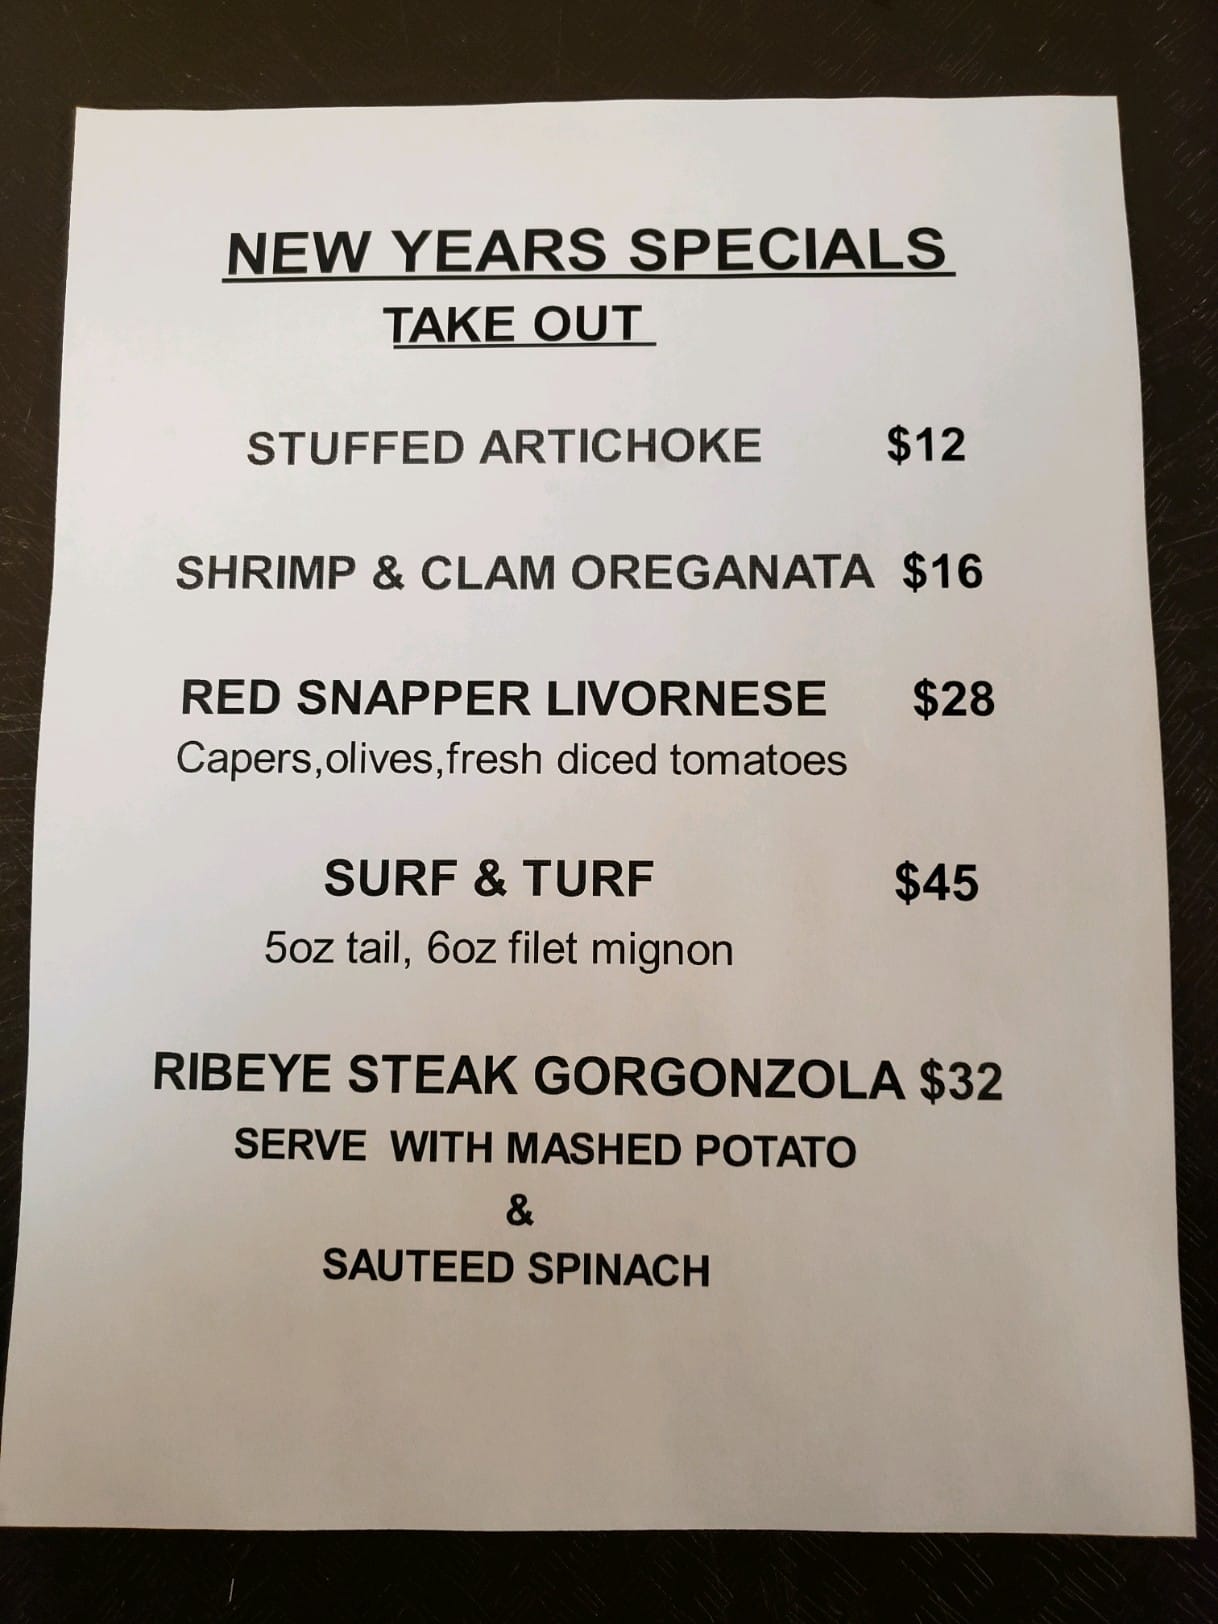 NEW YEARS SPECIALS
TAKE OUT
STUFFED ARTICHOKE $12
SHRIMP & CLAM OREGANATA $16
RED SNAPPER LIVORNESE $28
Capers,olives,fresh diced tomatoes
SURF & TURF $45
5oz tail, 6oz filet mignon
RIBEYE STEAK GORGONZOLA $32
SERVE WITH MASHED POTATO
&
SAUTEED SPINACH